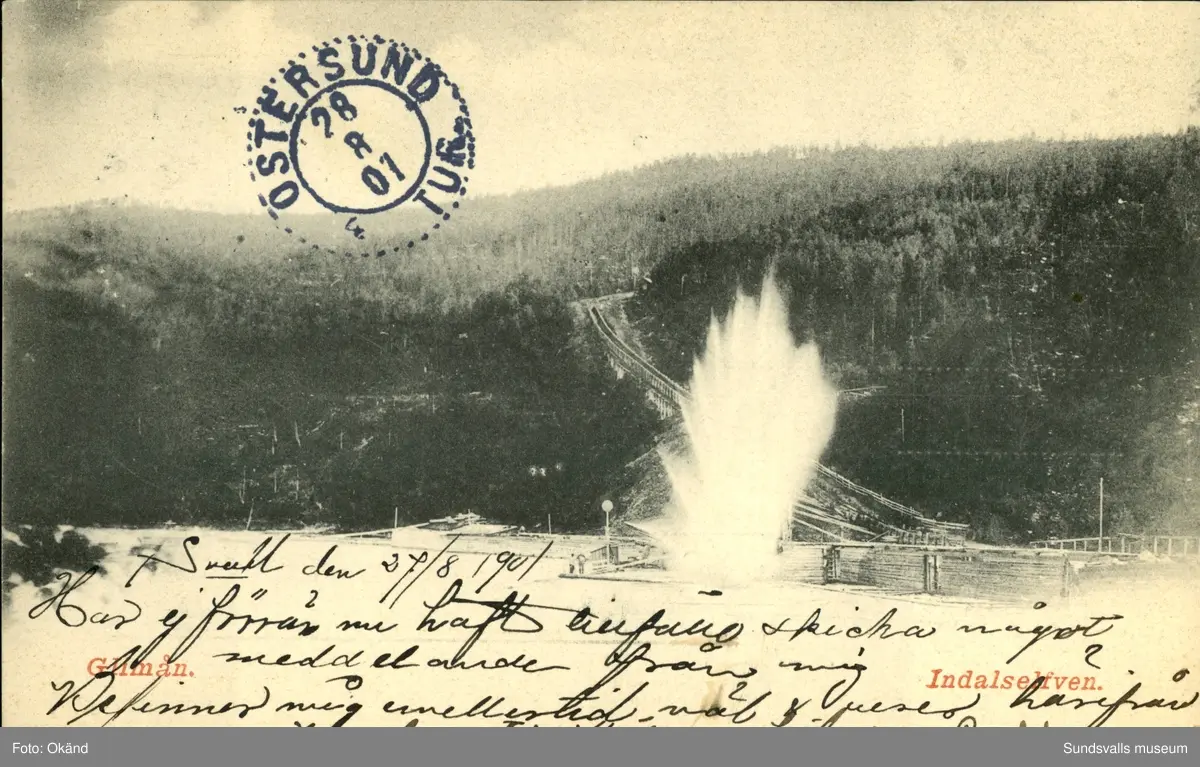 ÖSTERSUND
28
8
01
TUR
den 27/8 1901
Har ej förrän nu haft skicka något
meddelande från mig
Gilmån.
Indalselfven.
Befinner mig emellertid väl & reser härifrån
Foto: Okänd
Sundsvalls museum